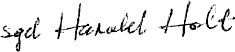 sgd Harold Holt